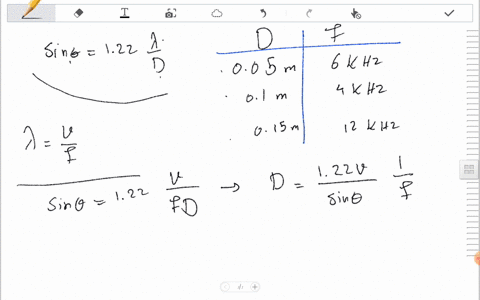 sinθ = 1.22 λ/D
D f
0.05 m 6 KHz
0.1 m 4 KHz
0.15 m 12 KHz
λ = v/f
sinθ = 1.22 v/fD → D = 1.22v/sinθ 1/f